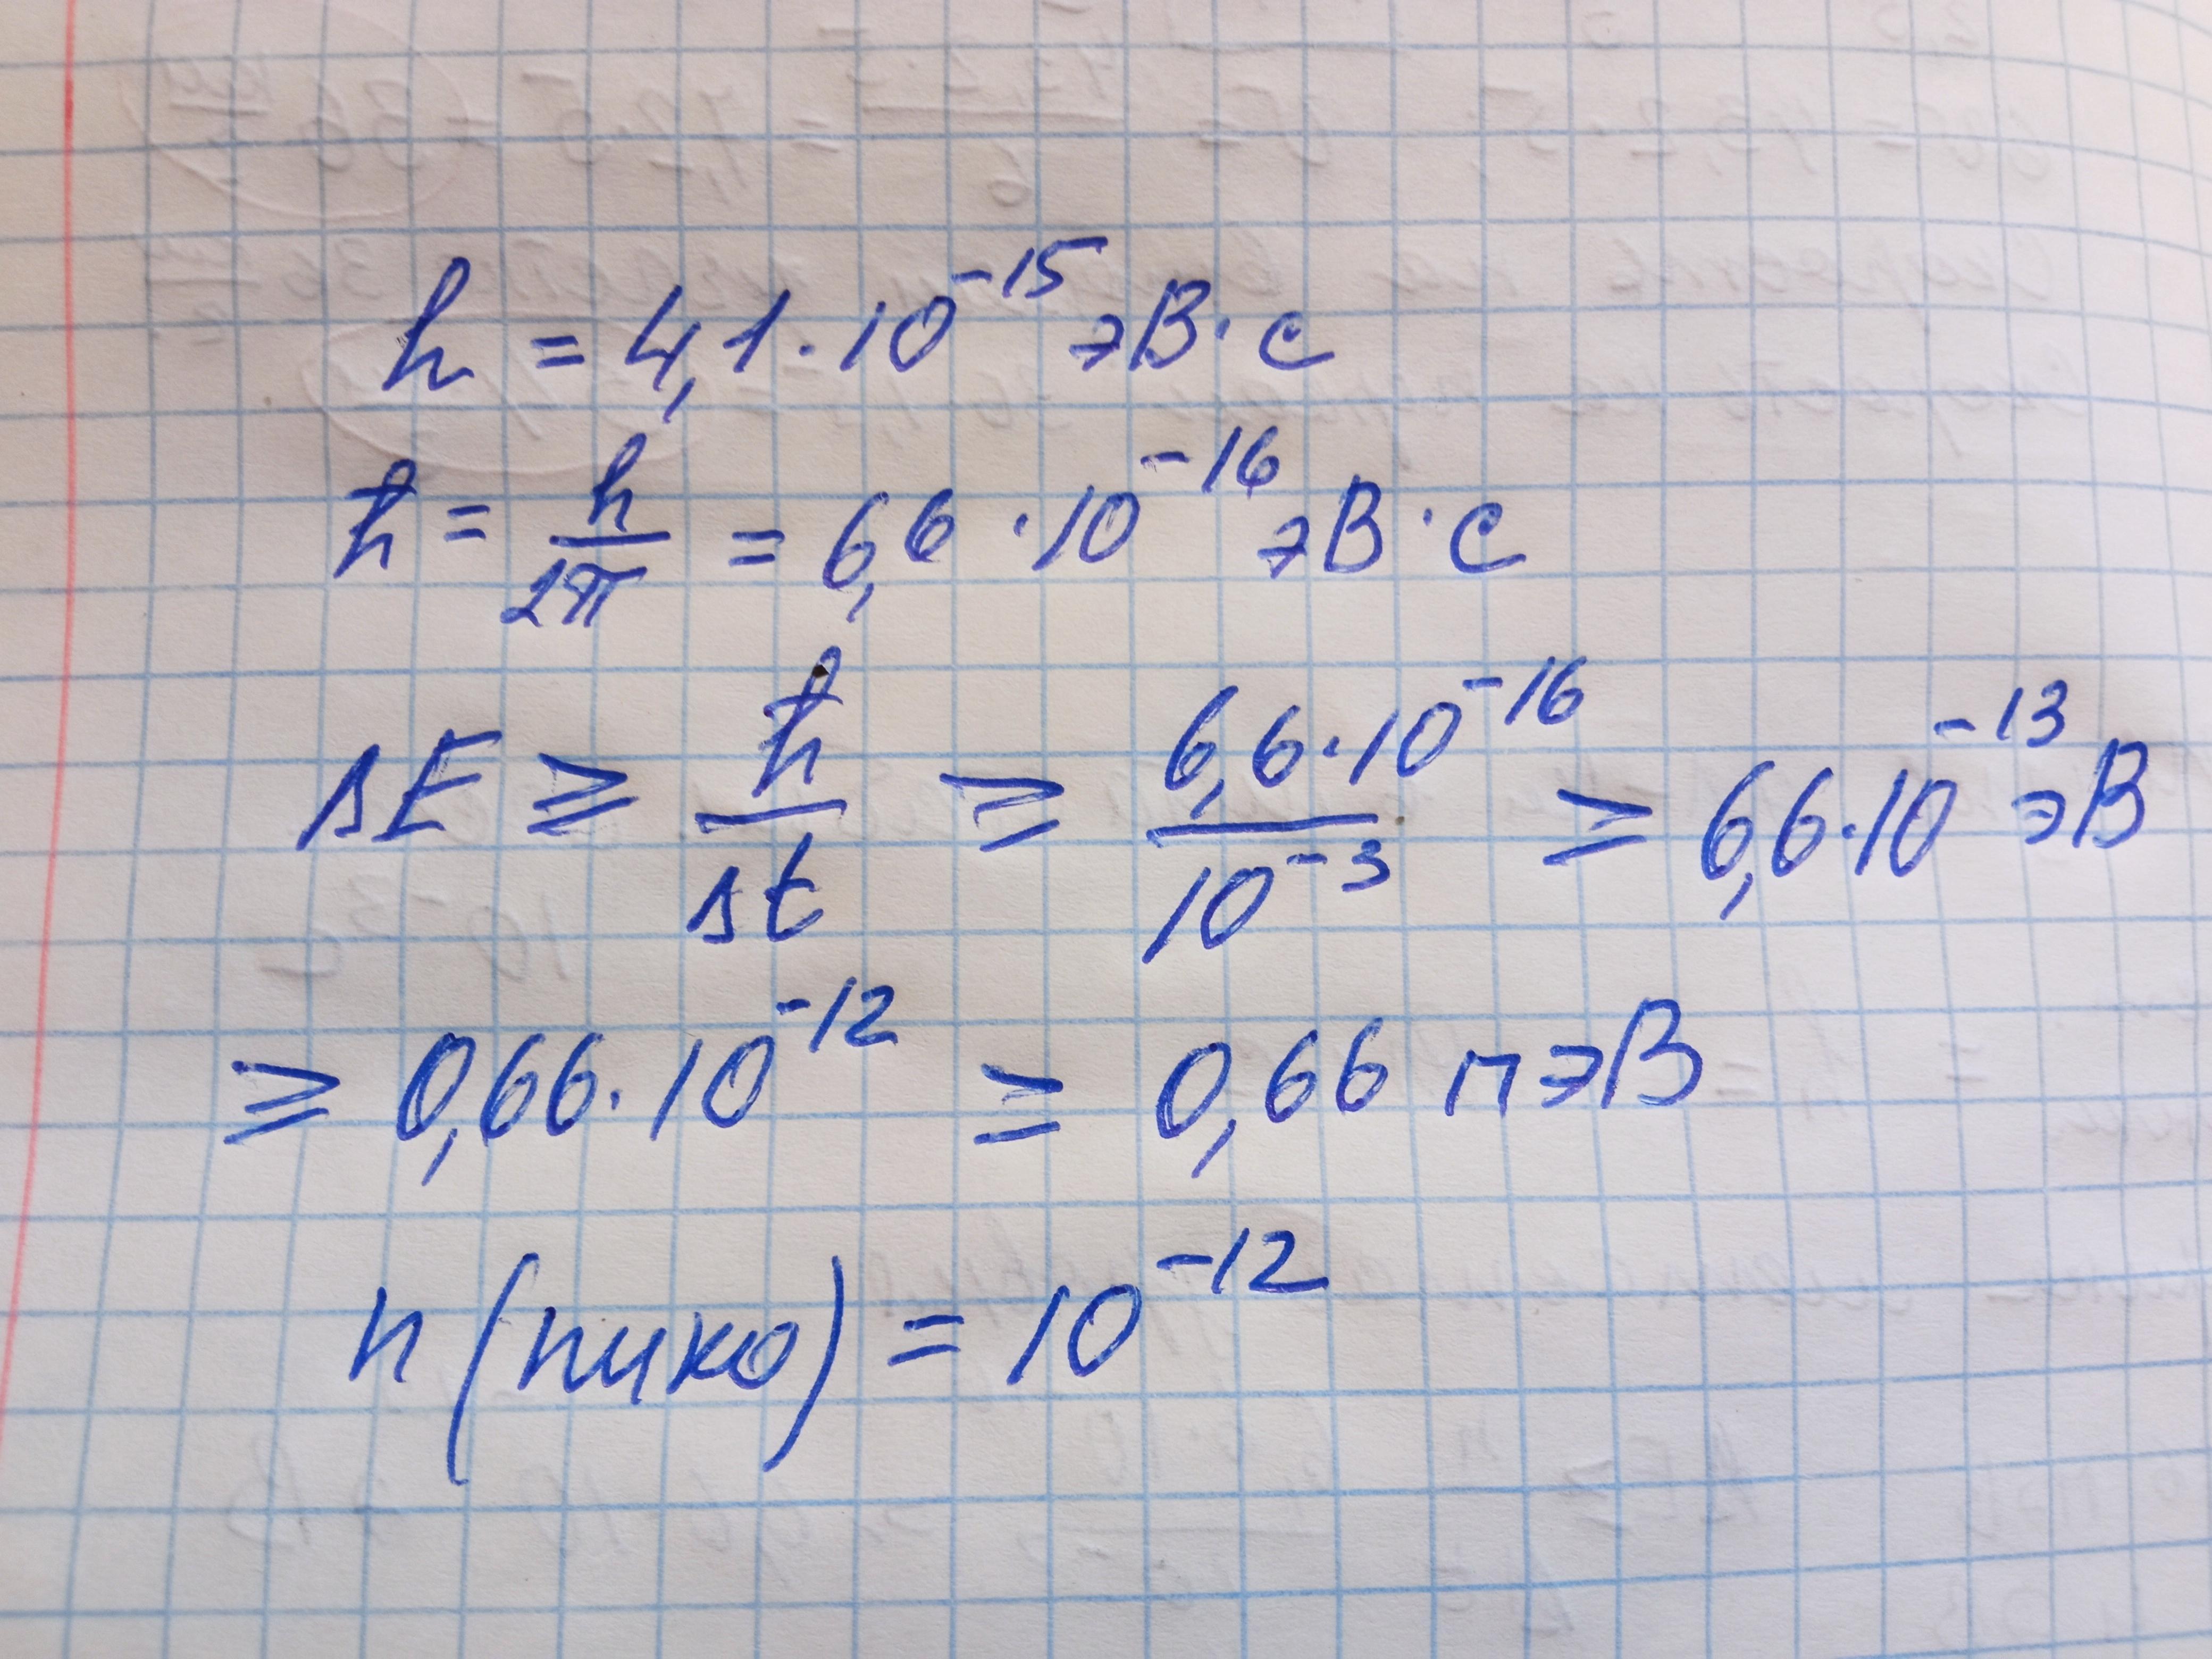 h = 4,1·10⁻¹⁵ эВ·с
ħ = h/2π = 6,6·10⁻¹⁶ эВ·с
ΔE ≥ ħ/Δt ≥ 6,6·10⁻¹⁶/10⁻³ ≥ 6,6·10⁻¹³ эВ
≥ 0,66·10⁻¹² ≥ 0,66 пэВ
п (пико) = 10⁻¹²